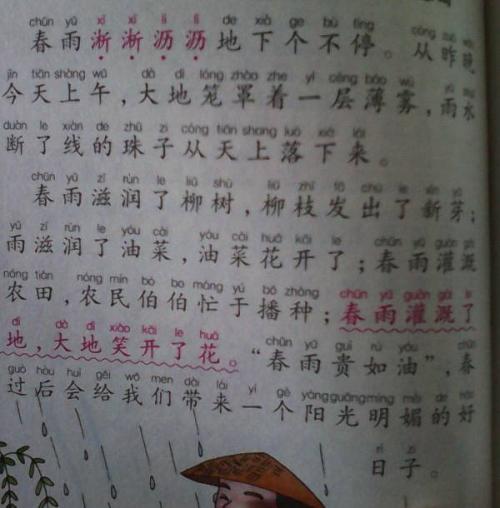 chūn yǔ xī xī lì lì de xià ge bù tíng cóng zuó wǎn
春雨淅淅沥沥地下个不停。从昨晚
jīn tiān shàng wǔ dà dì lǒng zhào zhe yì céng báo wù yǔ shuǐ
今天上午，大地笼罩着一层薄雾，雨水
duàn le xiàn de zhū zi cóng tiān shang luò xià lái
断了线的珠子从天上落下来。
chūn yǔ zī rùn le liǔ shù liǔ zhī fā chū le xīn yá
春雨滋润了柳树，柳枝发出了新芽；
yǔ zī rùn le yóu cài yóu cài huā kāi le chūn yǔ guàn gài
雨滋润了油菜，油菜花开了；春雨灌溉
nóng tián nóng mín bó bo máng yú bō zhǒng chūn yǔ guàn gài le
农田，农民伯伯忙于播种；春雨灌溉了
dì dà dì xiào kāi le huā chūn yǔ guì rú yóu chūn
地，大地笑开了花。“春雨贵如油”，春
guò hòu huì gěi wǒ men dài lái yí gè yáng guāng míng mèi de hǎo
过后会给我们带来一个阳光明媚的好
rì zi
日子。